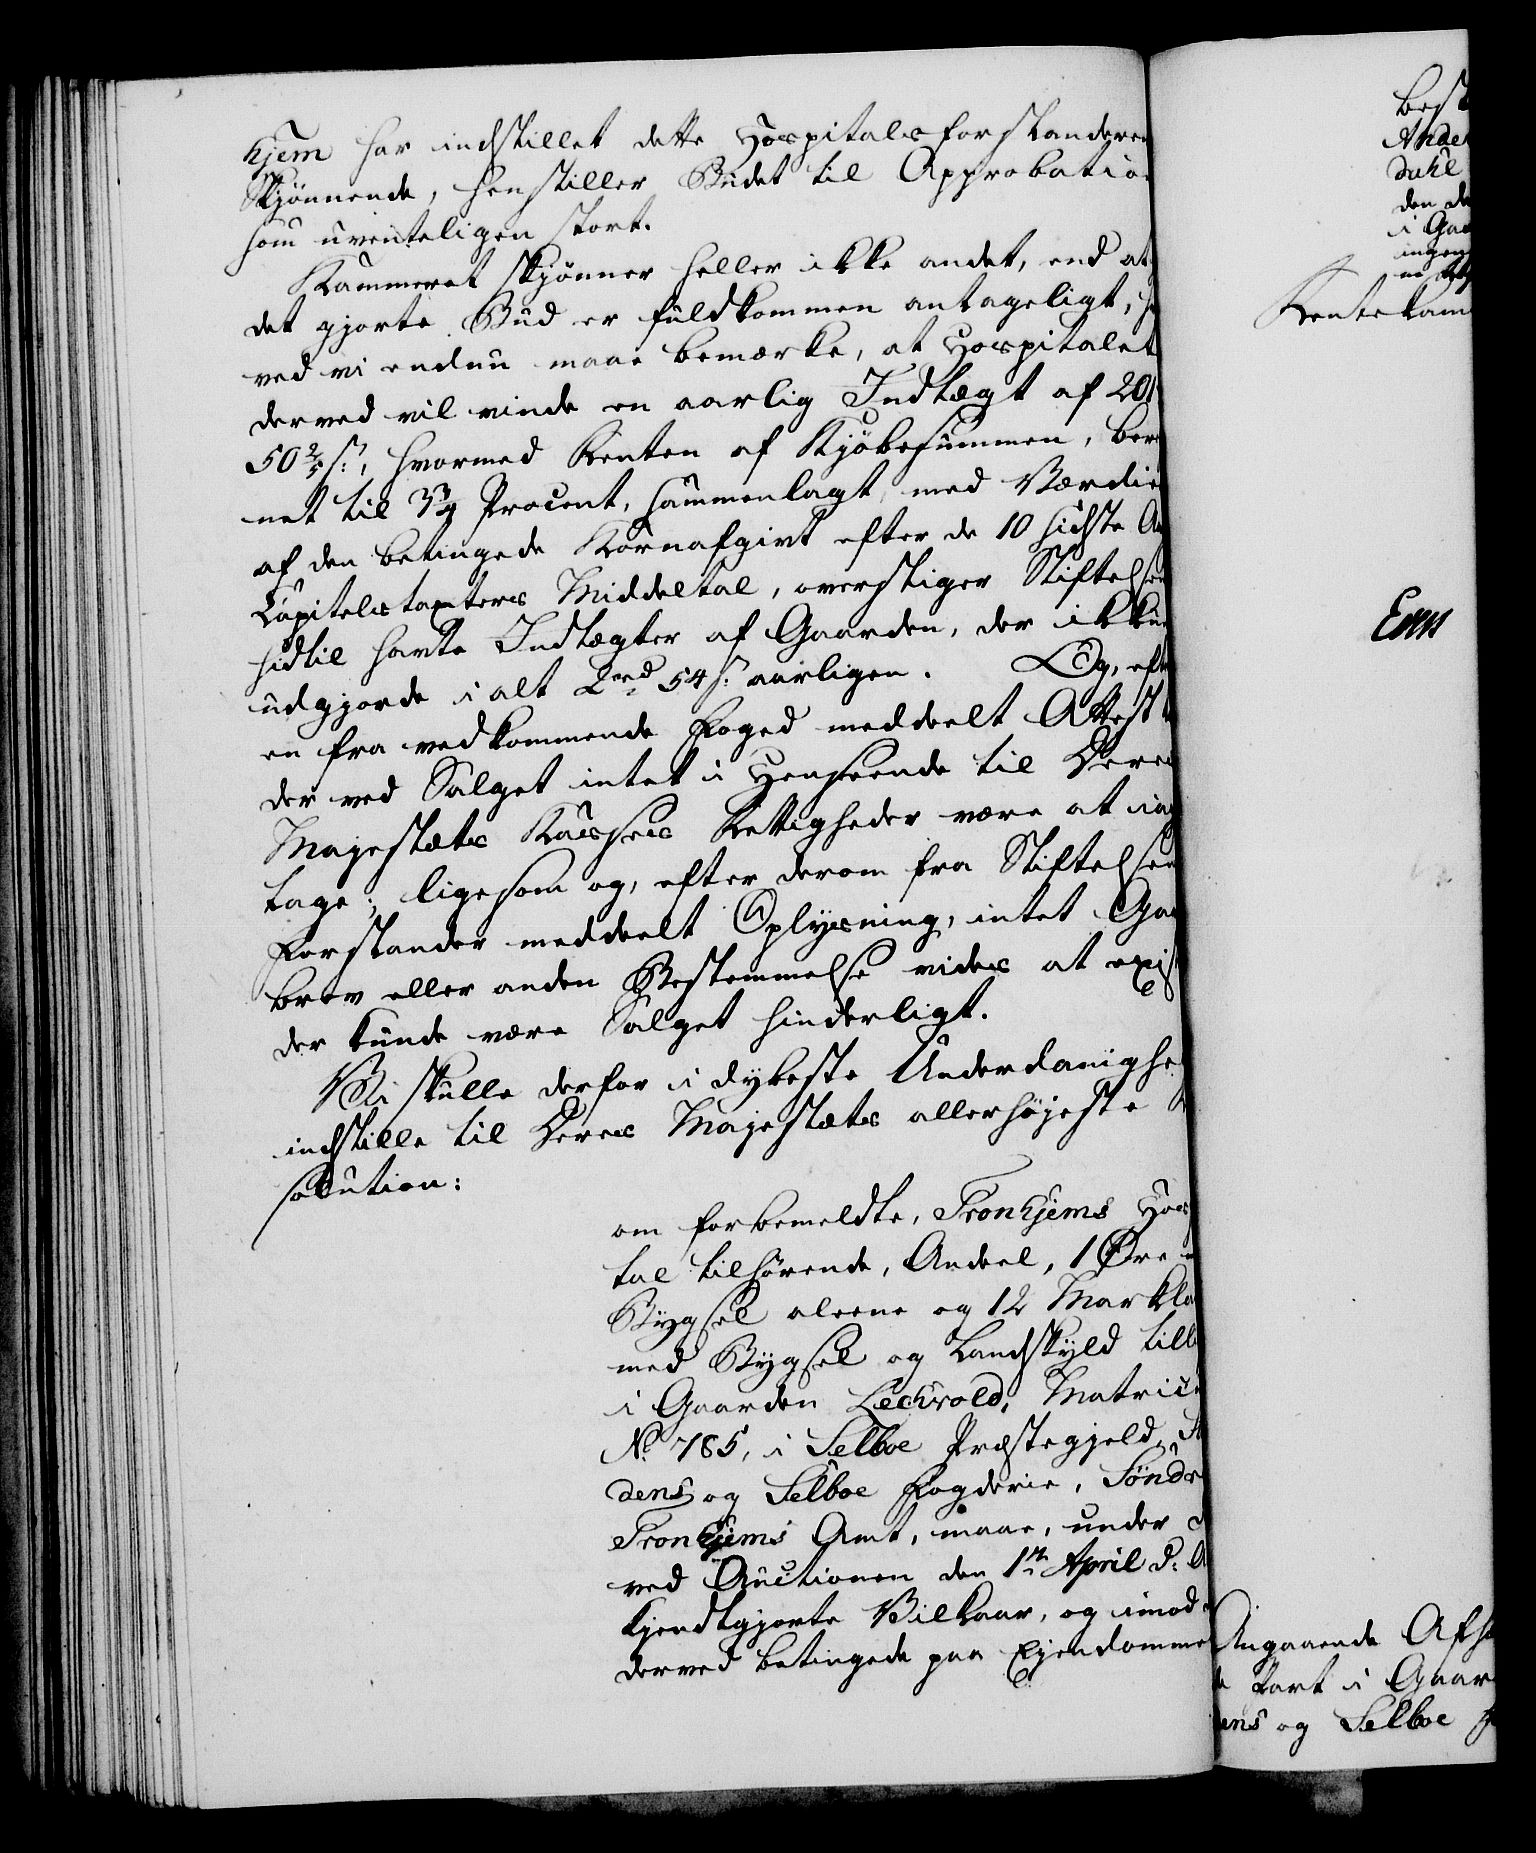 hjem har indstillet dette Hospitalsforstanderen
Skjönnende, henstiller Budet til Approbation
som uventeligen stort.
Kammeret skjönner heller ikke andet, end at
det gjorte Bud er fuldkommen antageligt,
ved vi endnu maae bemærke, at Hospitalet
derved vil vinde en aarlig Indtægt af 20
50 2/5 s:, hvormed Renten af Kjöbesummen, bereg
net til 3½ Procent, sammenlagt med Værdien
af den betingede Kornafgivt efter de 10 sidste Aa
Capitelstaxters Middeltal, overstiger Stiftelsens
hidtil havte Indtægter af Gaarden, der ikkun
udgjorde i alt 2rd 54 s: aarligen. Og, efter
en fra vedkommende Foged meddeelt Attest
der ved Salget intet i Henseende til Deres
Majestæts Kasses Rettigheder være at iag
tage; ligesom og, efter derom fra Stiftelsens
Forstander meddeelt Oplysning, intet Gave
brev eller anden Bestemmelse vides at exist
der kunde være Salget hinderligt.
Vi skulle derfor i dybeste Underdanighed
indstille til Deres Majestæts allerhöjeste Re
solution:
om forbemeldte, Tronhjems Hospi
tal tilhörende, Andeel, 1 Öre
Bygsel aleene og 12 Markla
med Bygsel og Landskyld tillige
i Gaarden Lechvold, Matricul
No 785, i Selboe Præstegjeld, St
dens og Selboe Fogderie, Söndre
Tronhjems Amt, maae, under d
ved Auctionen den 1te April d: A
kjendtgjorte Vilkaar, og imod
derved betingede paa Ejendommen
best
Andet
dahl
den de
i Gaa
ingen
Rentekam
Ems
Angaaende Afh
Part i Gaar
dens og Selboe F